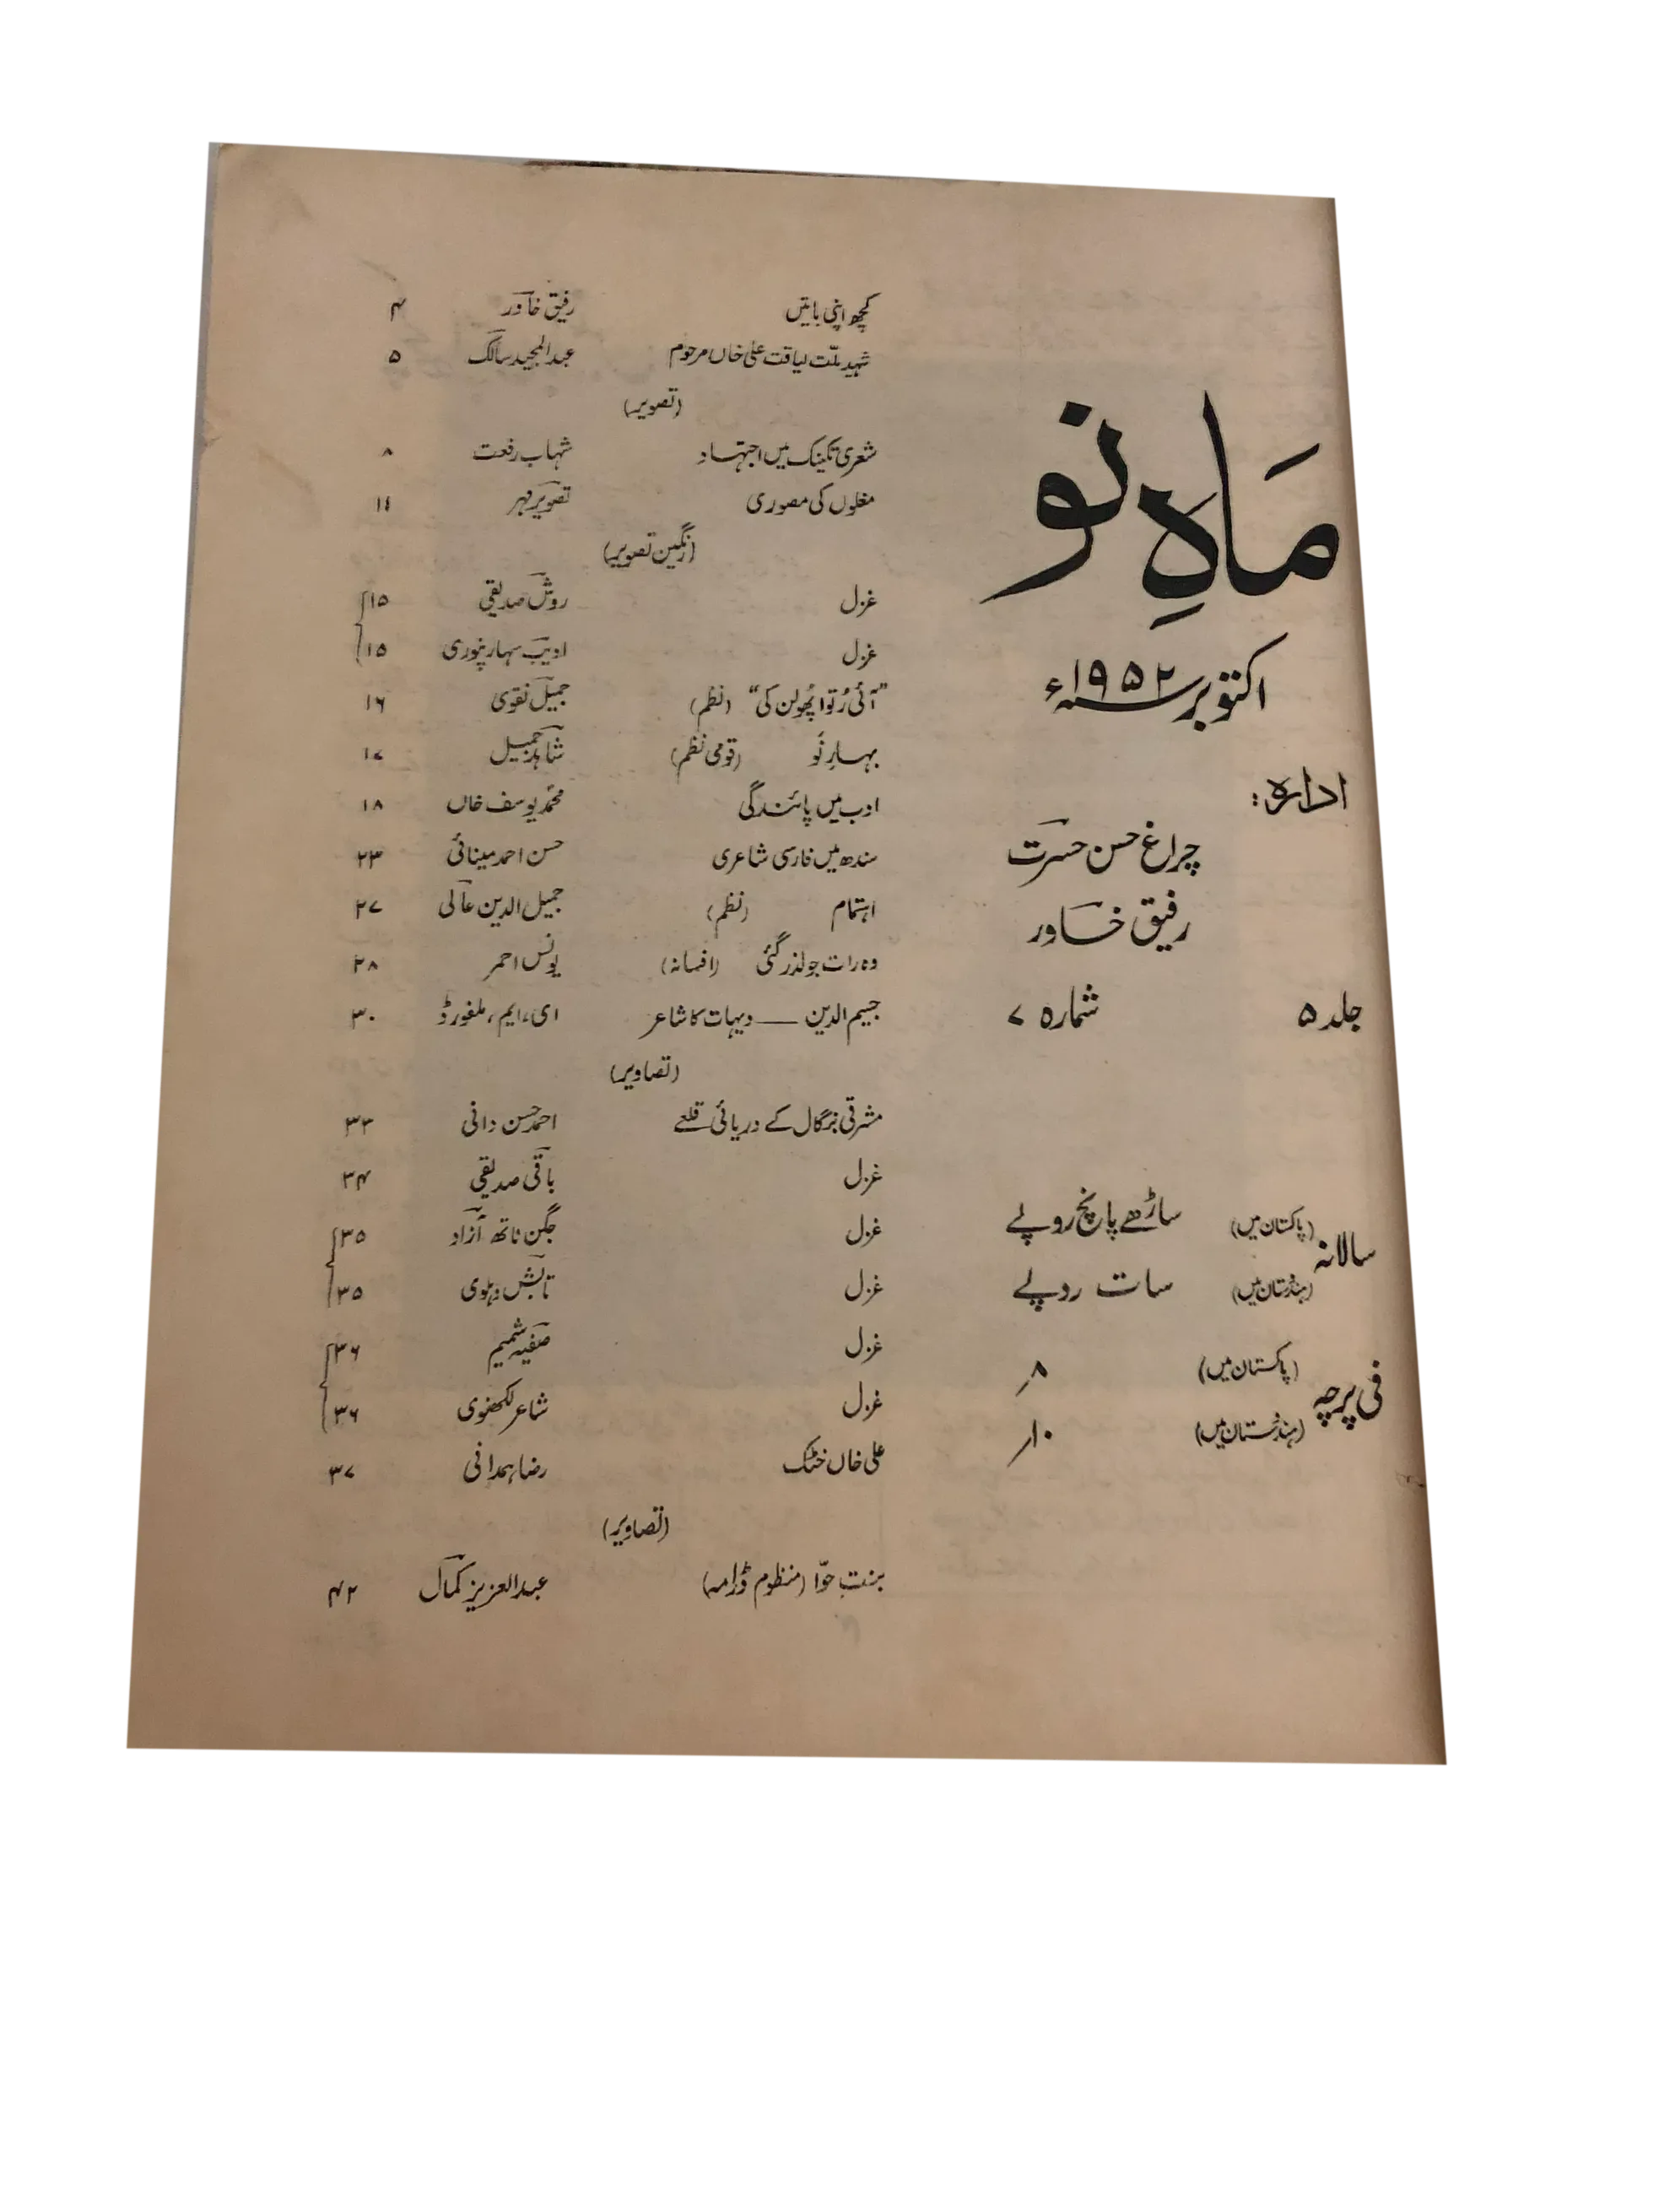 ماہِ نو
اکتوبر ۱۹۵۲ء
ادارہ:
چراغ حسن حسرت
رفیق خاور
جلد ۵ شمارہ ۷
سالانہ (پاکستان میں) ساڑھے پانچ روپے
(ہندوستان میں) سات روپے
فی پرچہ (پاکستان میں) ۸؍
(ہندوستان میں) ۱۰؍
کچھ اپنی باتیں رفیق خاور ۴
شہیدِ ملّت لیاقت علی خاں مرحوم عبدالمجید سالک ۵
(تصویر)
شعری تکنیک میں اجتہاد شہاب رفعت ۸
مغلوں کی مصوری تصویر مہر ۱۱
(رنگین تصویر)
غزل روش صدیقی ۱۵
غزل ادیب سہارنپوری ۱۵
"آئی رُتوا پھولن کی" (نظم) جمیل نقوی ۱۶
بہارِ نَو (قومی نظم) شاہد جمیل ۱۷
ادب میں پائندگی محمد یوسف خاں ۱۸
سندھ میں فارسی شاعری حسن احمد مینائی ۲۳
اہتمام (نظم) جمیل الدین عالی ۲۷
وہ رات جو گذر گئی (افسانہ) یونس احمر ۲۸
جسیم الدین — دیہات کا شاعر ای، ایم، ملفورڈ ۳۰
(تصاویر)
مشرقی بنگال کے دریائی قلعے احمد حسن دانی ۳۳
غزل باقی صدیقی ۳۴
غزل جگن ناتھ آزاد ۳۵
غزل تابش دہلوی ۳۵
غزل صفیہ شمیم ۳۶
غزل شاعر لکھنوی ۳۶
علی خاں خٹک رضا ہمدانی ۳۷
(تصاویر)
بنتِ حوّا (منظوم ڈرامہ) عبدالعزیز کمال ۴۲